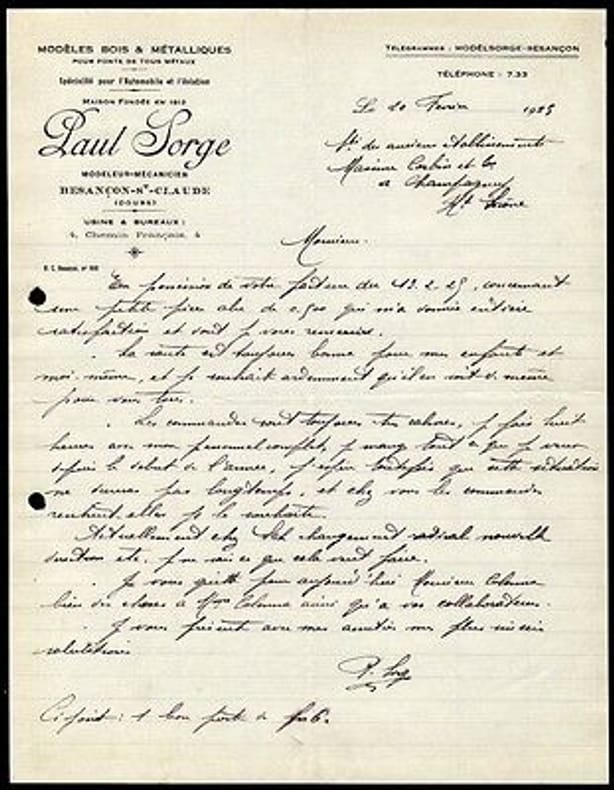 MODÈLES BOIS & MÉTALLIQUES
POUR FONTE DE TOUS MÉTAUX
Spécialité pour l'Automobile et l'Aviation
MAISON FONDÉE EN 1912
Paul Sorge
MODELEUR-MÉCANICIEN
BESANÇON-St-CLAUDE
(DOUBS)
USINE & BUREAUX :
4, Chemin Français, 4
TÉLÉGRAMMES : MODÈLSORGE-BESANÇON
TÉLÉPHONE : 7.33
Le 20 Fevrier 1925
Sté des anciens établissements
à Champagney
Hte Saône
Monsieur.
En possession de votre facture du 13.2.25, concernant
une petite qui m'a donnée entière
satisfaction et dont je vous remercie.
La santé est toujours bonne pour mes enfants et
moi-même, et je souhaite ardemment qu'il en soit de même
pour vous tous.
Les commandes sont toujours très calmes, je fais huit
heures avec mon personnel complet, je mange tout ce que je
depuis le début de l'année, j'espère toutefois que cette situation
ne durera pas longtemps, et chez vous les commandes
rentrent elles je le souhaite.
Actuellement chez changement radical nouvelle
direction etc. je ne sais ce que cela veut faire.
Je vous quitte pour aujourd'hui Monsieur Colonna
bien des choses à Mme Colonna ainsi qu'à vos collaborateurs.
Je vous présente avec mes amitiés mes plus sincères
salutations
P. Sorge
Ci-joint : 1 bon poste de